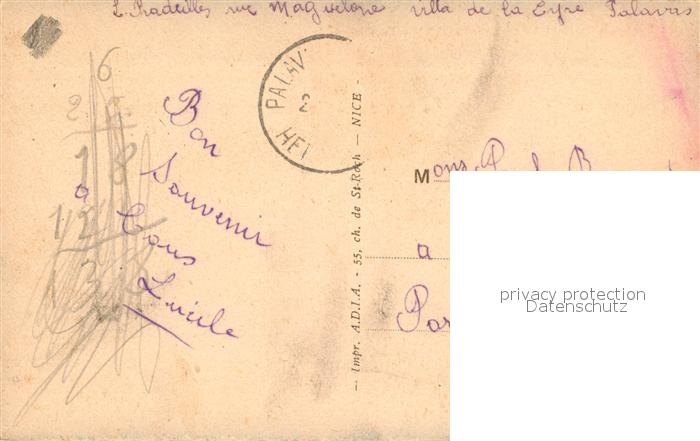 L. Pradeilles rue Maguelone villa de la Lyre Palavas
PALAV
2
HE
6
2
1 8
1 2
3
Bon
Souvenir
a tous
Lucile
— Impr. A.D.I.A. - 55, ch. de St-Roch — NICE -
Mons
a
Par
privacy protection
Datenschutz